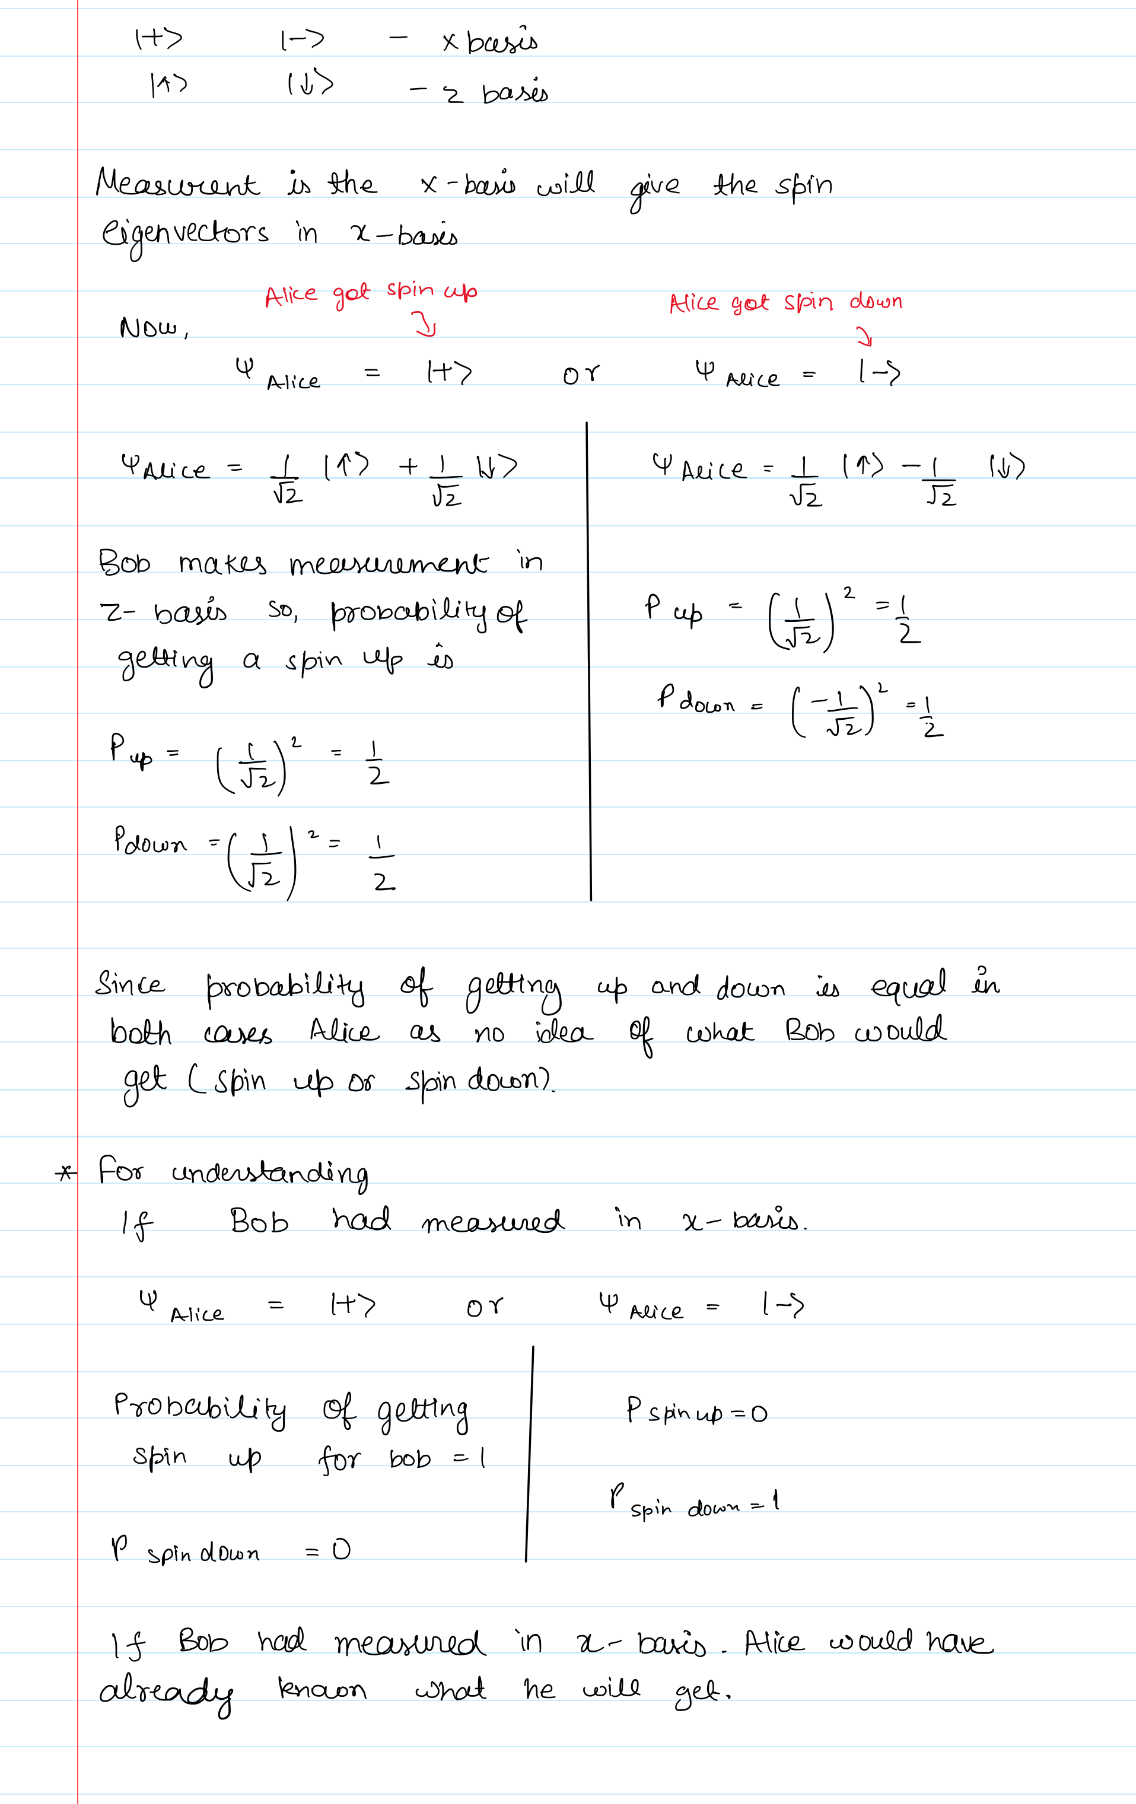 |+> |-> - x basis
|↑> |↓> - z basis
Measurent is the x-basis will give the spin
eigenvectors in x-basis
Alice got spin up Alice got spin down
Now,
Ψ Alice = |+> or Ψ Alice = |->
Ψ Alice = 1/√2 |↑> + 1/√2 |↓>
Ψ Alice = 1/√2 |↑> - 1/√2 |↓>
Bob makes measurement in
z- basis so, probability of
getting a spin up is
P up = (1/√2)² = 1/2
P down = (1/√2)² = 1/2
P up = (1/√2)² = 1/2
P down = (-1/√2)² = 1/2
Since probability of getting up and down is equal in
both cases Alice as no idea of what Bob would
get (spin up or spin down).
* For understanding
If Bob had measured in x-basis.
Ψ Alice = |+> or Ψ Alice = |->
Probability of getting
spin up for bob = 1
P spin down = 0
P spin up = 0
P spin down = 1
If Bob had measured in x-basis. Alice would have
already known what he will get.